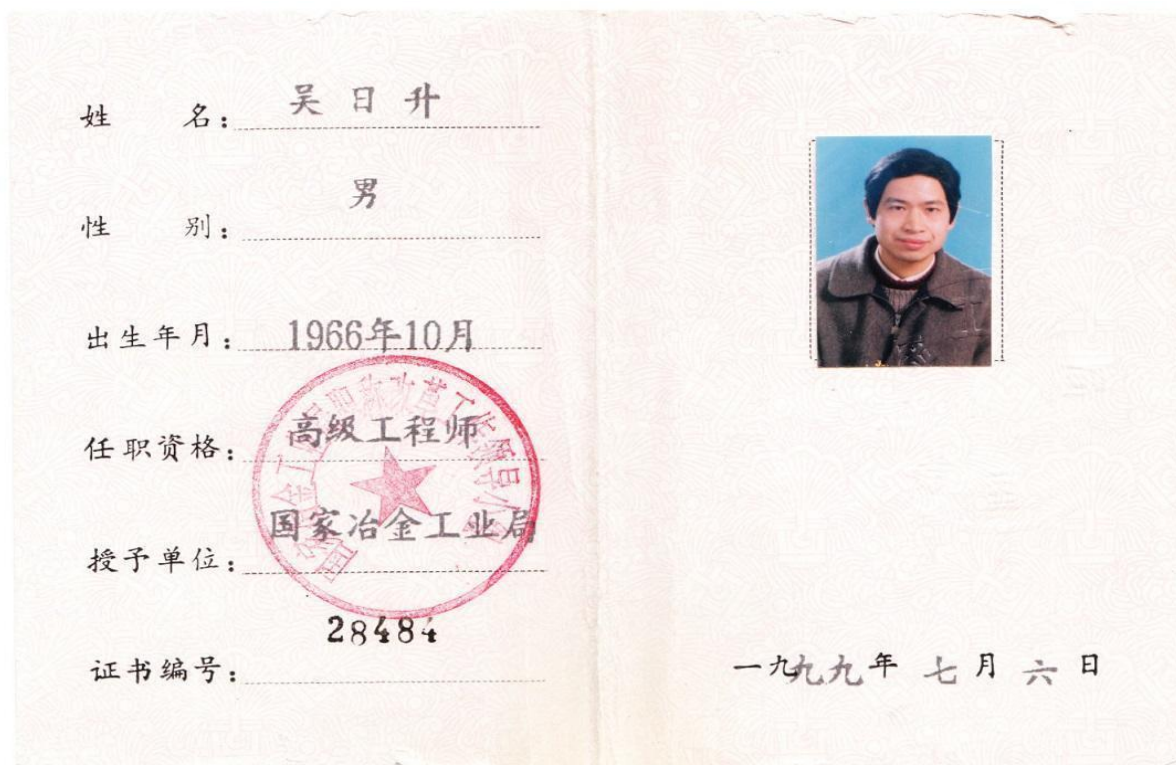 姓名：吴日升
性别：男
出生年月：1966年10月
任职资格：高级工程师
授予单位：国家冶金工业局
证书编号：28484
一九九九年七月六日